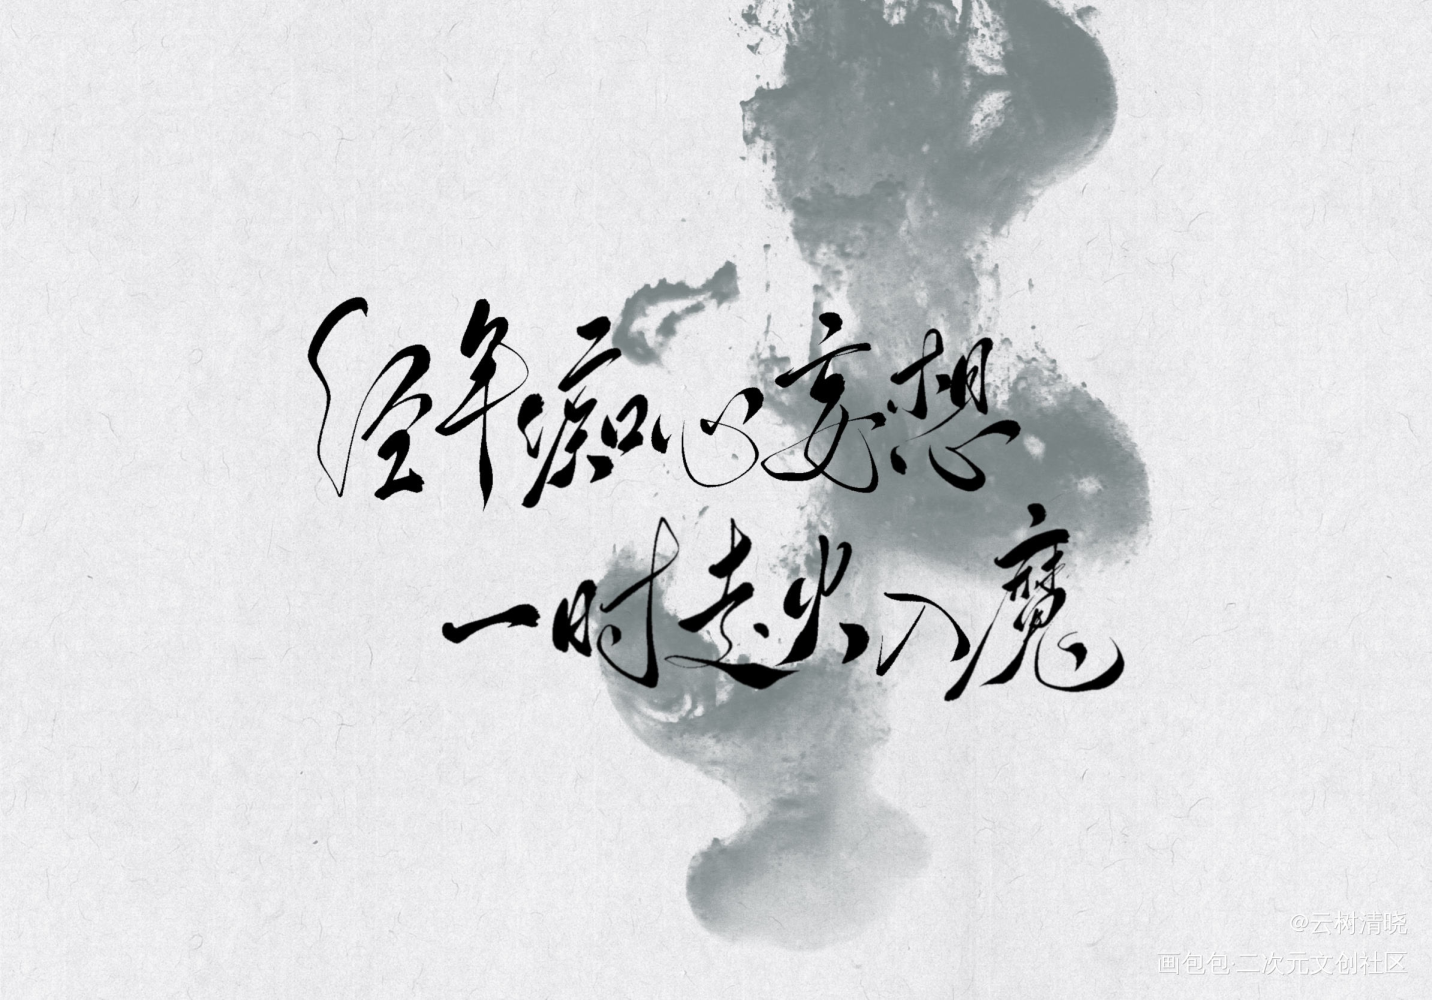 经年痴心妄想
一时走火入魔
@云树清晓
画包包·二次元文创社区